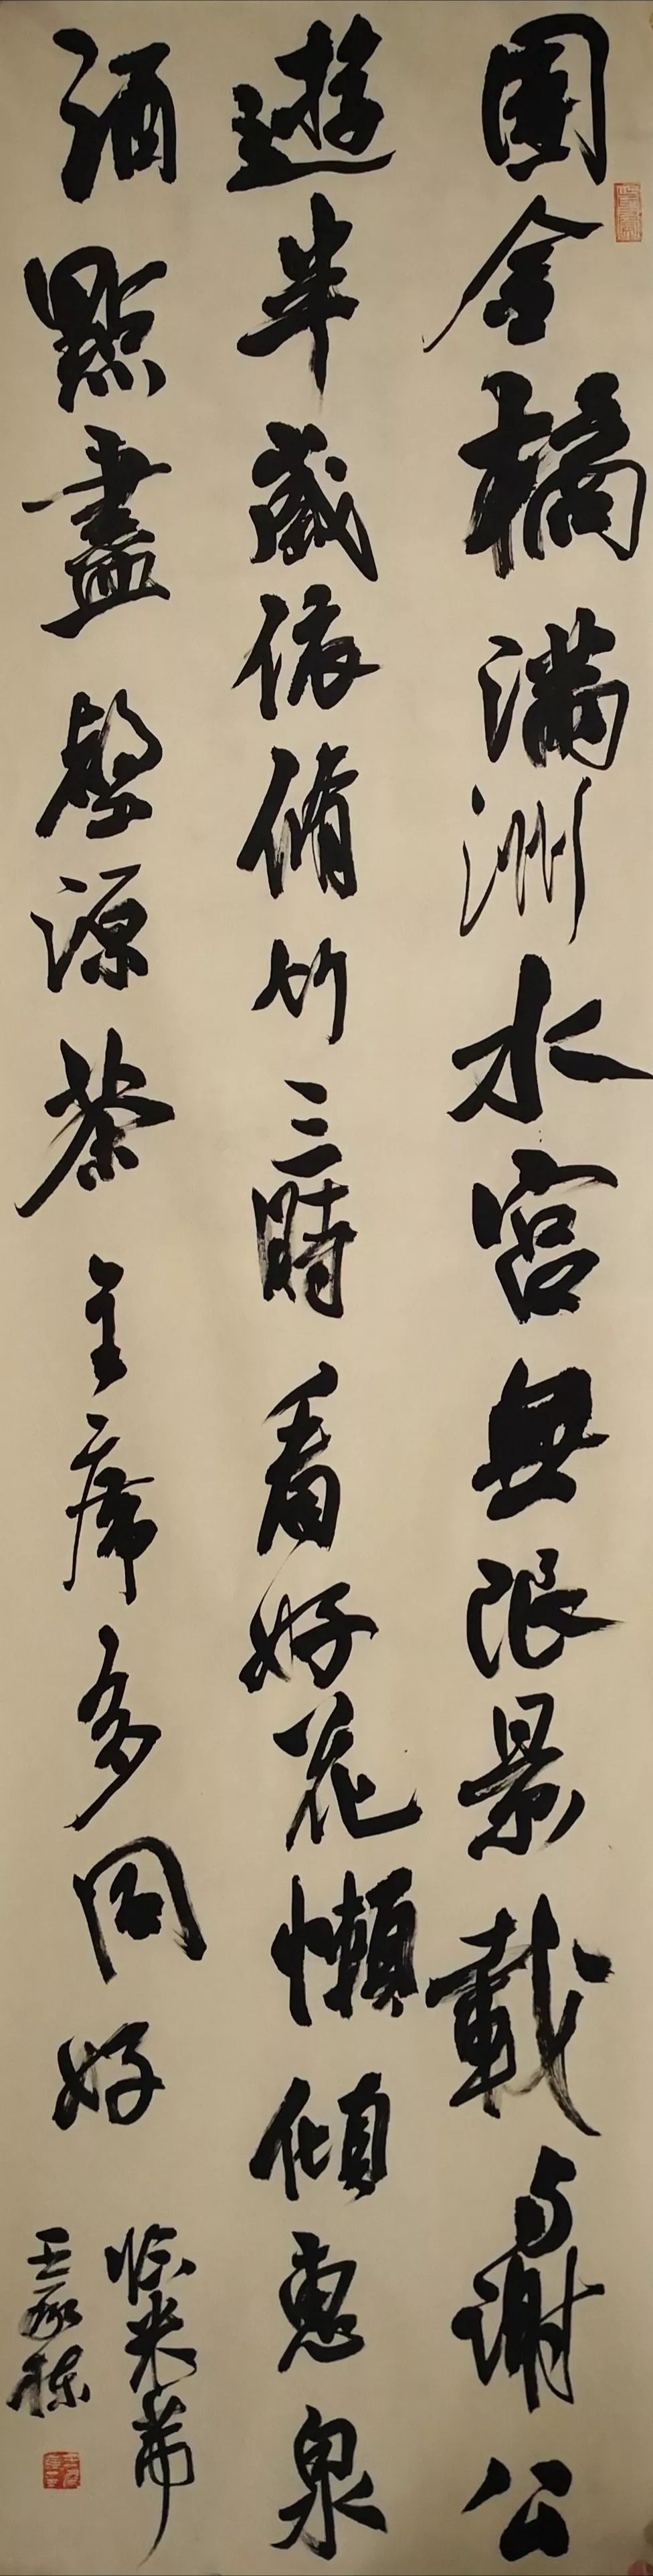 團金橘滿洲水宮無限景載与謝公
遊半歲依脩竹三時看好花懶傾惠泉
酒點盡壑源茶主席多同好
临米芾
王